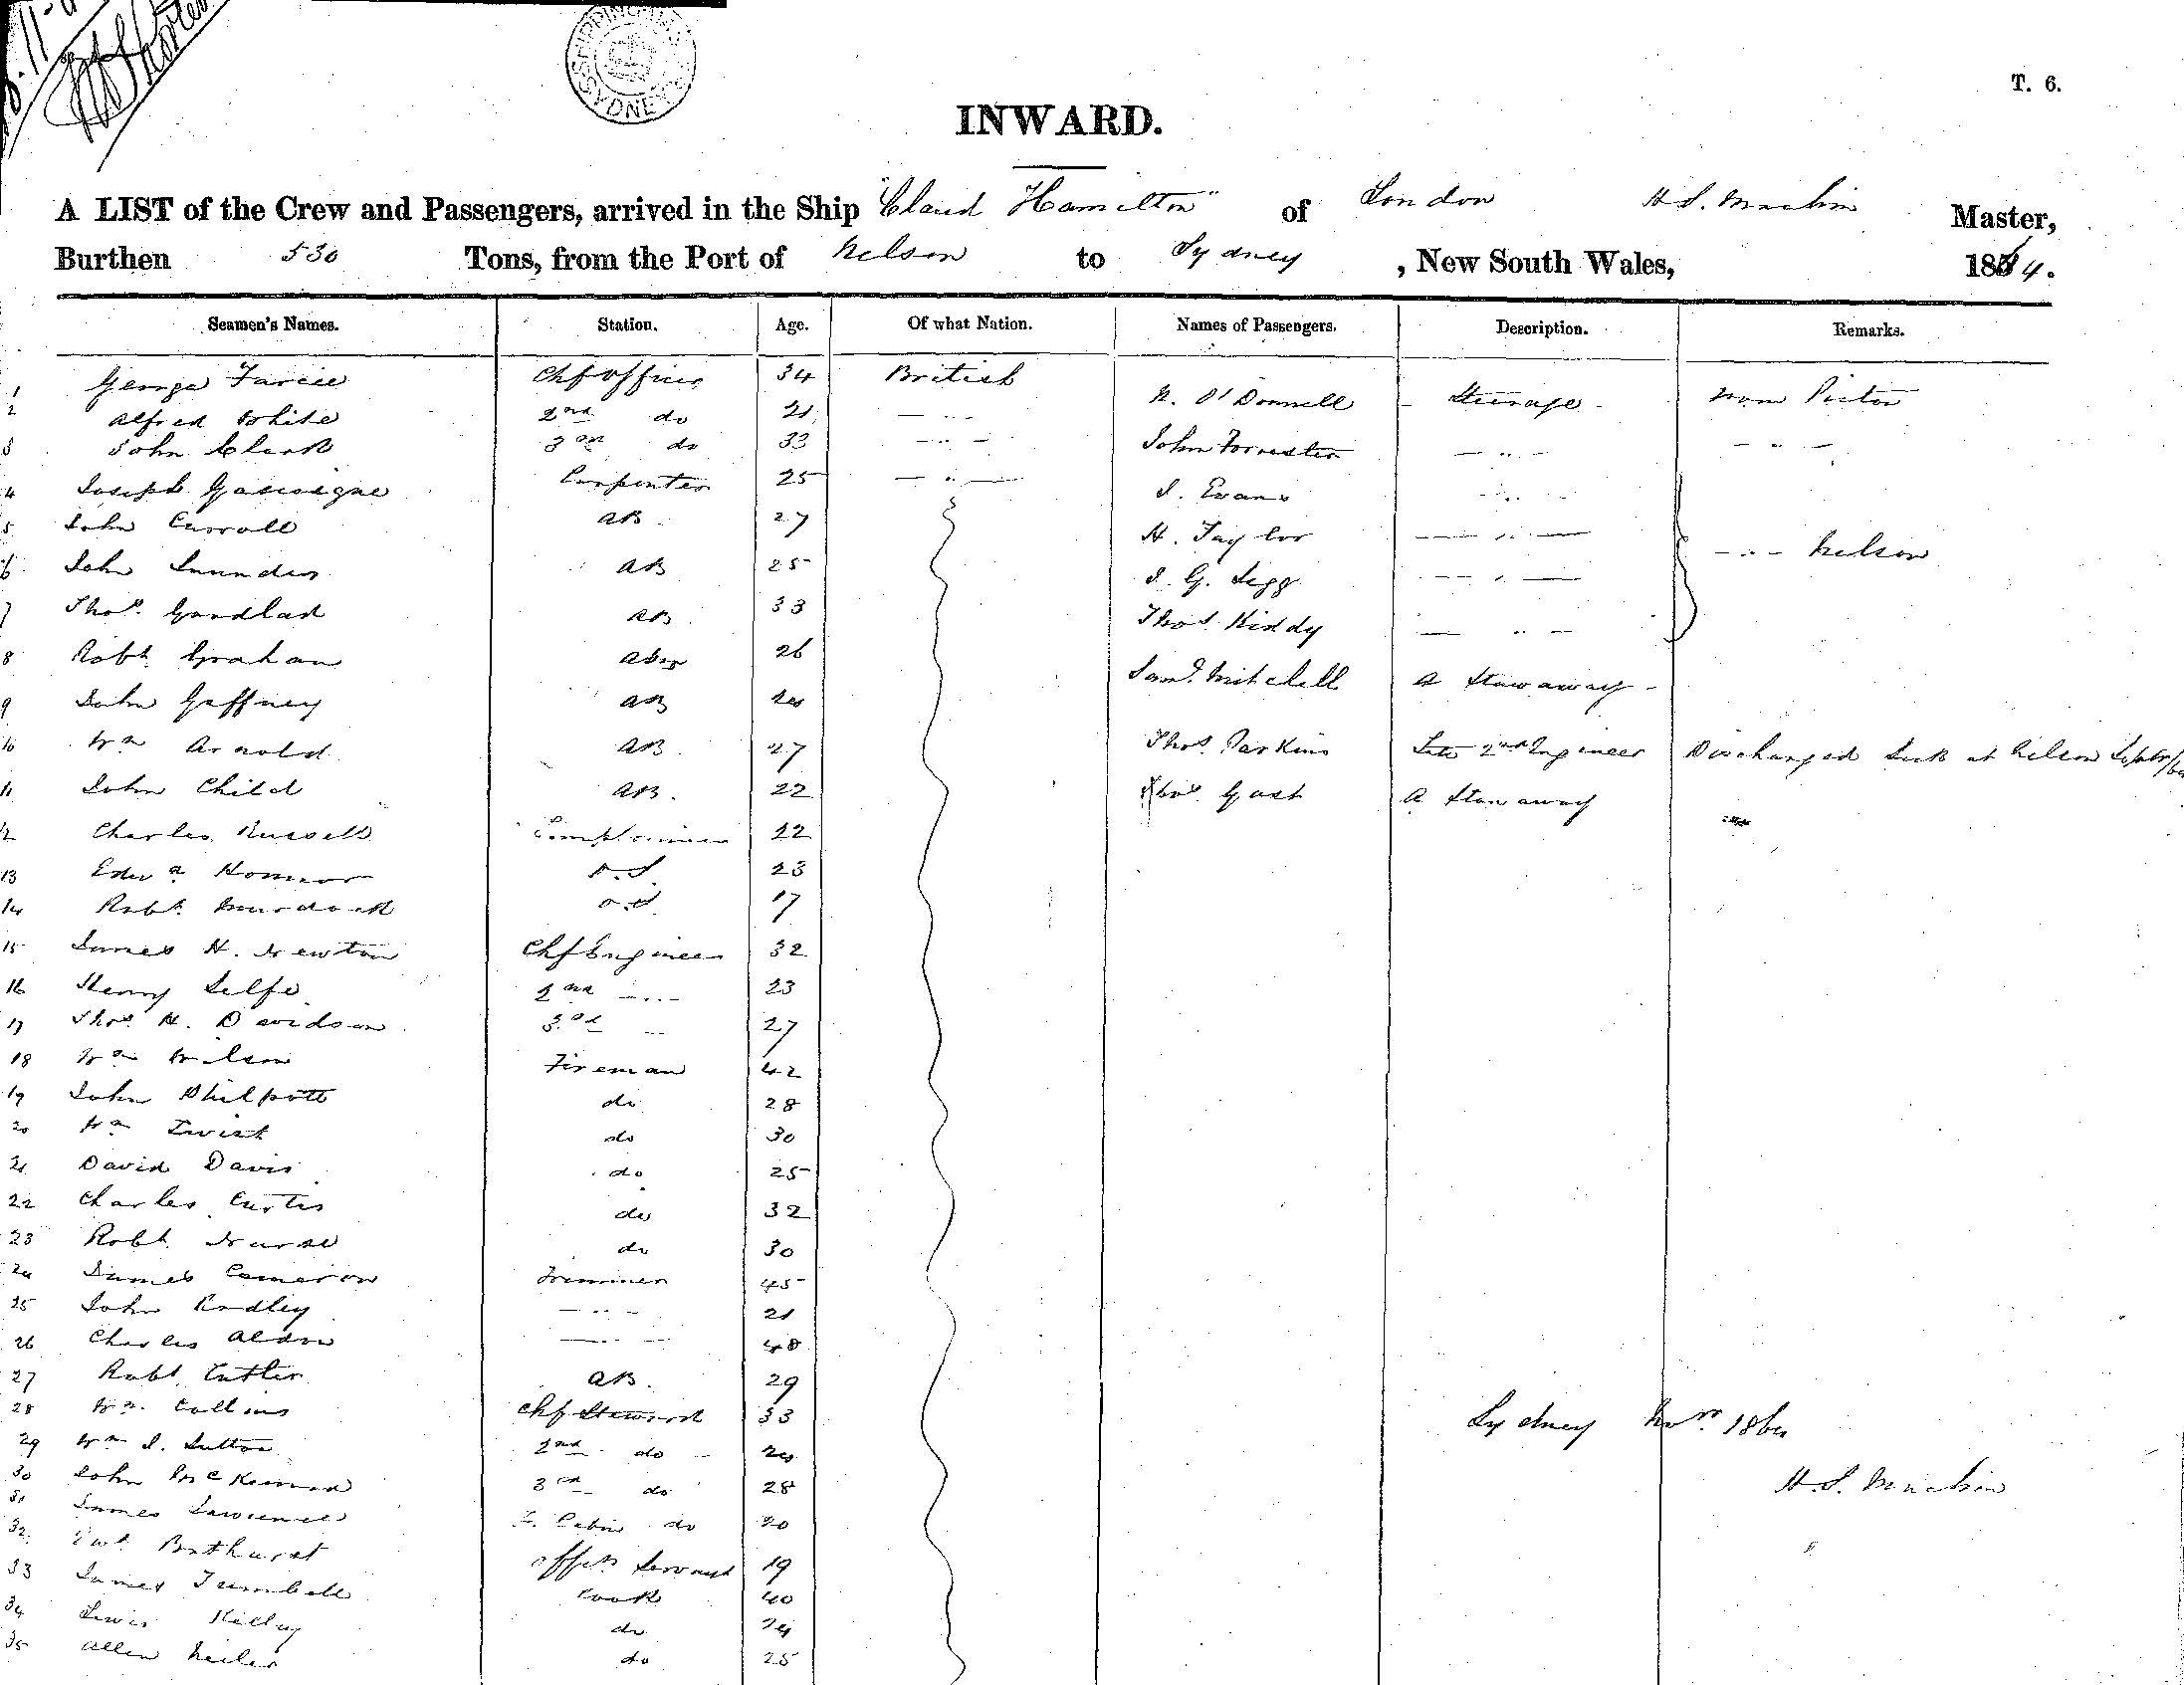 SHIPPING MASTERS SYDNEY
T. 6.
INWARD.
A LIST of the Crew and Passengers, arrived in the Ship "Claud Hamilton" of London H S. Machin Master,
Burthen 530 Tons, from the Port of Nelson to Sydney , New South Wales, 1864.
Seamen's Names. Station. Age. Of what Nation. Names of Passengers. Description. Remarks.
1 George Chf Officer 34 British
N. O'Donnell Steerage from Picton
2 Alfred White 2nd do 21 — " —
3 John Clark 3rd do 33 — " —
John Forrester — " — — " —
4 Joseph Gascoigne Carpenter 25 — " —
J. Evans — " —
5 John Carroll AB 27
H. Taylor — " — — " — Nelson
6 John Saunders AB 25
J. G. Legg — " —
7 Thos. Goodlad AB 33
Thos. Hiddy — " —
8 Robt. Graham 26
Saml. Mitchell A Stowaway
9 John Gaffney AB 24
10 Wm Arnold AB 27
Thos. Parkins Late 2nd Engineer Discharged Sick at Nelson
11 John Child AB. 22
Thos. Gash A Stowaway
12 Charles Russell Lamptrimmer 22
13 Edwd. O.S. 23
14 Robt. Murdoch O.S. 17
15 James H. Newton Chf Engineer 32
16 Henry Selfe 2nd — " — 23
17 Thos. H. Davidson 3rd — 27
18 Wm Wilson Fireman 42
19 John Philpott do 28
20 Wm Twist do 30
21 David Davis do 25
22 Charles Curtis do 32
23 Robt. Nurse do 30
24 James Cameron Trimmer 45
25 John Radley — " — 21
26 Charles — " — 48
27 Robt. Cutler AB. 29
28 Wm. Collins Chf Steward 33
Sydney Novr 1864
29 Wm J. Sutton 2nd do 24
30 John 3rd do 28
H. S. Machin
31 James Lawrence Cabin do 20
32 Bathurst Offrs Servant 19
33 James Turnbull Cook 40
34 Lewis Kelley do 24
35 Allen do 25